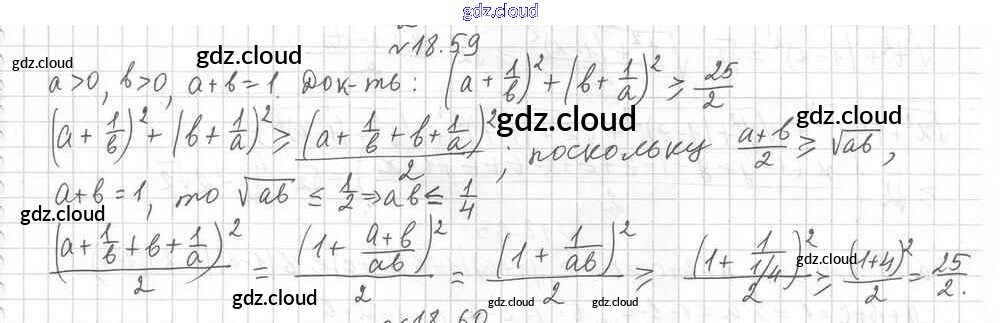 gdz.cloud
№18.59
gdz.cloud gdz.cloud
a>0, b>0, a+b=1. Док-ть: (a + 1/b)² + (b + 1/a)² ≥ 25/2
gdz.cloud gdz.cloud
(a + 1/b)² + (b + 1/a)² ≥ (a + 1/b + b + 1/a)²/2; поскольку (a+b)/2 ≥ √ab,
a+b=1, то √ab ≤ 1/2 ⇒ ab ≤ 1/4
gdz.cloud
(a + 1/b + b + 1/a)²/2 = (1 + (a+b)/ab)²/2 = (1 + 1/ab)²/2 ≥ (1 + 1/1/4)²/2 ≥ (1+4)²/2 = 25/2.
gdz.cloud
gdz.cloud gdz.cloud gdz.cloud gdz.cloud